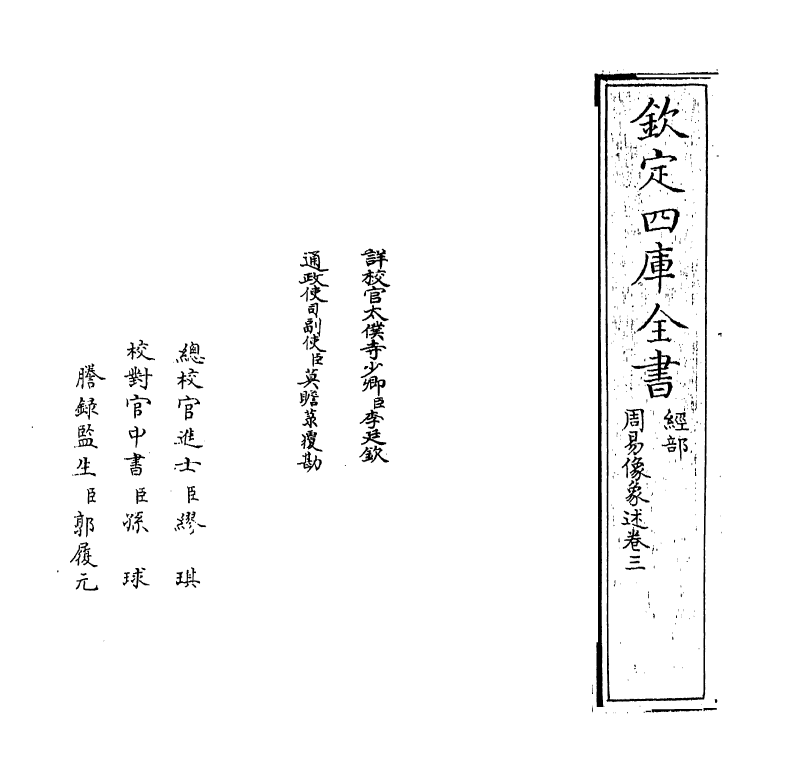 欽定四庫全書
經部
周易像象述卷三
詳校官太僕寺少卿臣李廷欽
通政使司副使臣莫瞻菉覆勘
總校官進士臣繆琪
校對官中書臣孫球
謄録監生臣郭履元